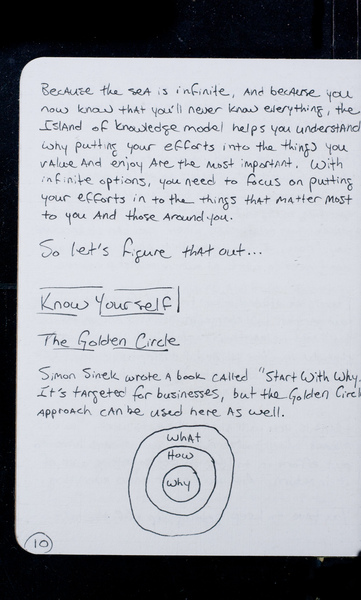 Because the sea is infinite, and because you
now know that you'll never know everything, the
Island of Knowledge model helps you understand
why putting your efforts into the things you
value and enjoy are the most important. With
infinite options, you need to focus on putting
your efforts in to the things that matter most
to you and those around you.
So let's figure that out...
Know Yourself
The Golden Circle
Simon Sinek wrote a book called "Start With Why.
It's targeted for businesses, but the Golden Circle
approach can be used here as well.
What
How
Why
10